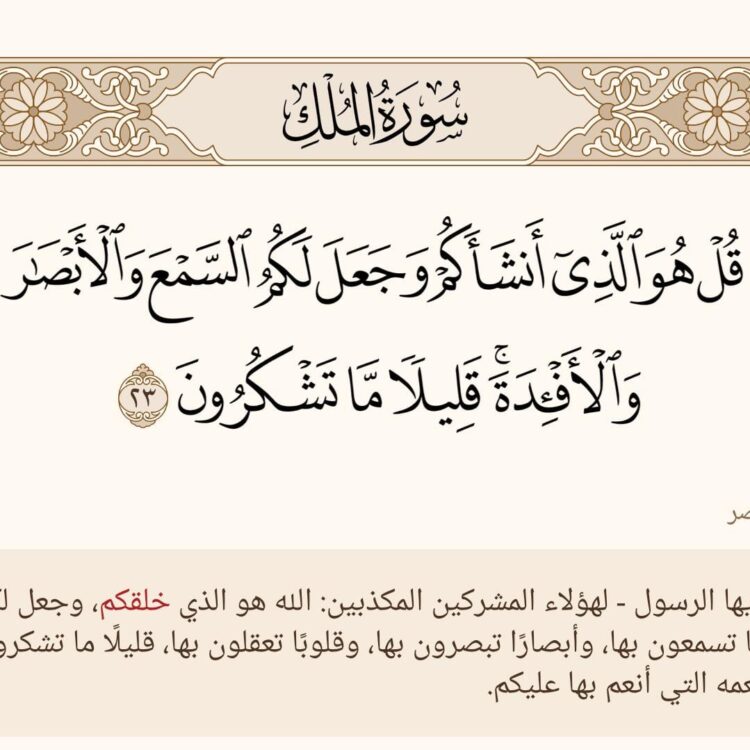 سُورَةُ المُلْكِ
قُلْ هُوَ ٱلَّذِىٓ أَنشَأَكُمْ وَجَعَلَ لَكُمُ ٱلسَّمْعَ وَٱلْأَبْصَـٰرَ
وَٱلْأَفْـِٔدَةَ ۚ قَلِيلًا مَّا تَشْكُرُونَ ٢٣
يها الرسول - لهؤلاء المشركين المكذبين: الله هو الذي خلقكم، وجعل
تسمعون بها، وأبصارًا تبصرون بها، وقلوبًا تعقلون بها، قليلًا ما تشكرو
عمه التي أنعم بها عليكم.